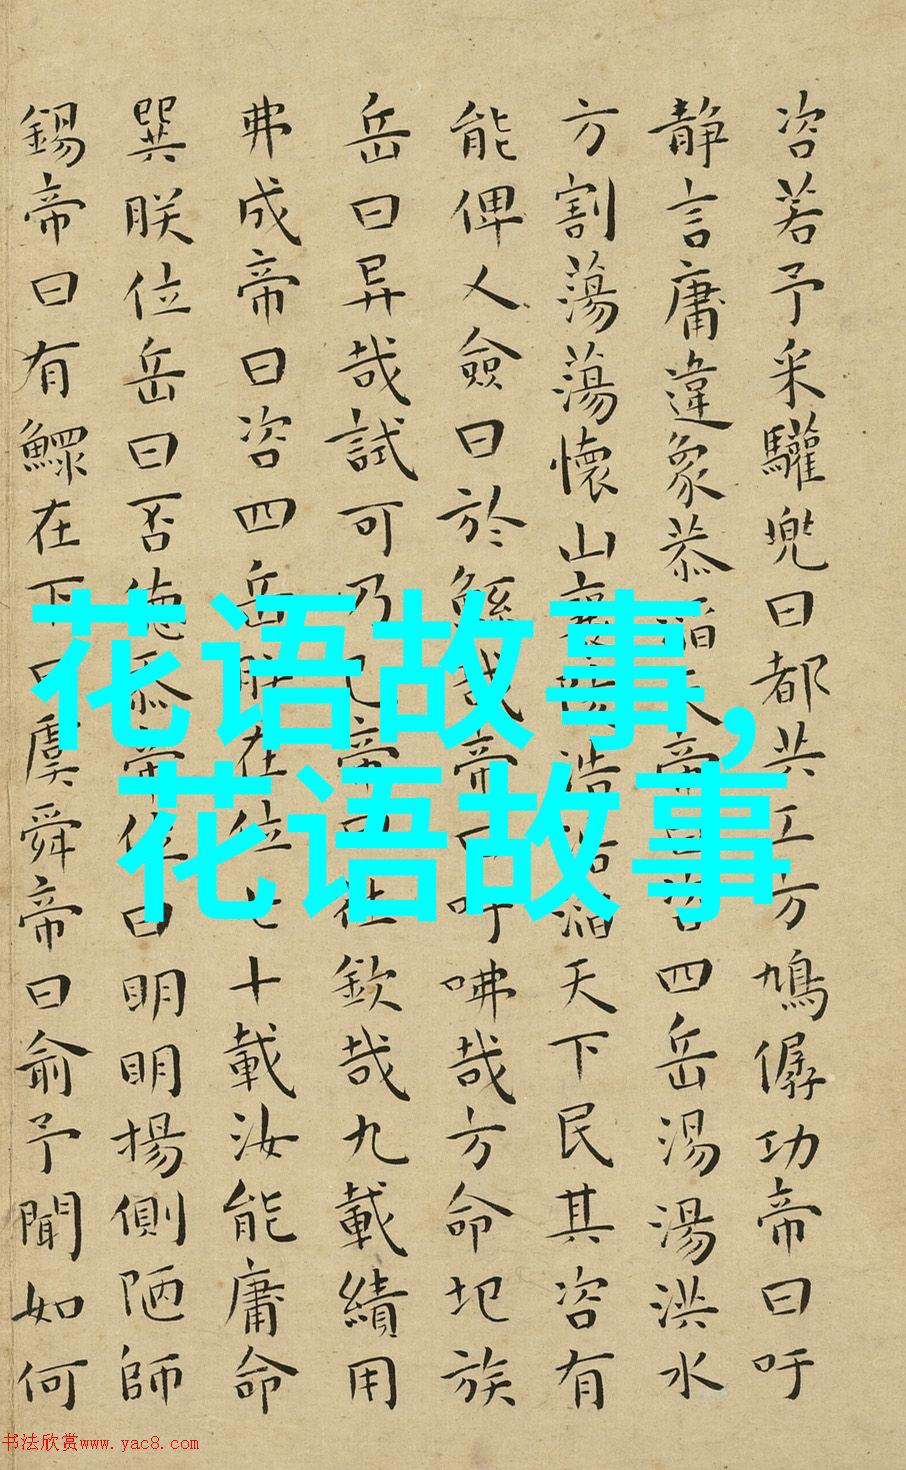 咨若予采驩兜曰都共工方鳩僝功帝曰吁
静言庸違象恭滔天帝曰咨四岳湯湯洪水
方割蕩蕩懷山襄陵浩浩滔天下民其咨有
能俾乂僉曰於鯀哉帝曰吁咈哉方命圯族
岳曰异哉試可乃已帝曰往欽哉九載績用
弗成帝曰咨四岳朕在位七十載汝能庸命
巽朕位岳曰否徳忝帝位曰明明揚側陋師
錫帝曰有鰥在下曰虞舜帝曰俞予聞如何
花语故事,
花语故事
书法欣赏www.yac8.com